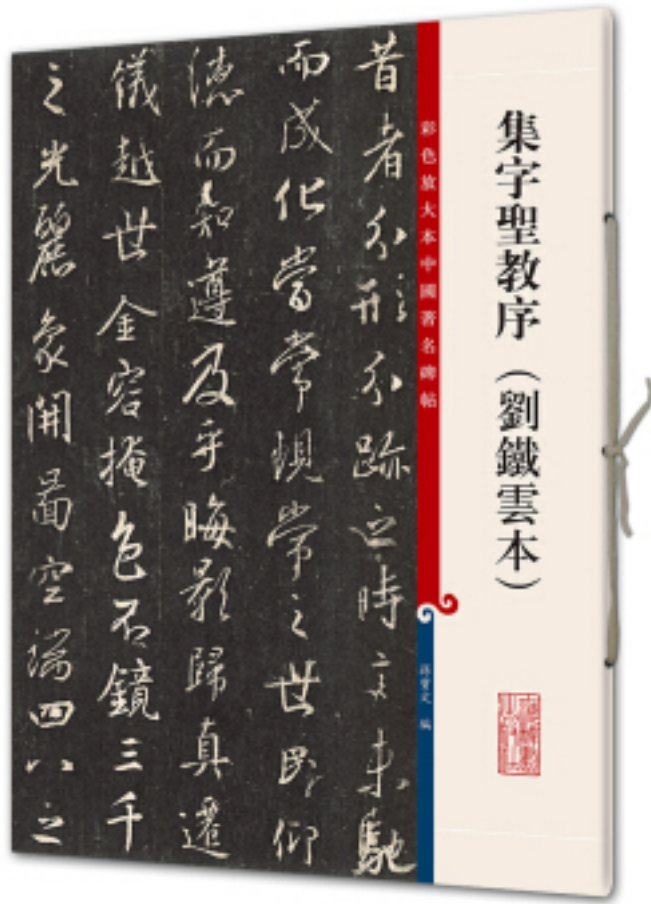 集字聖教序（劉鐵雲本）
彩色放大本中國著名碑帖
孫寶文 編
昔者分形分跡之時言未馳
而成化當常現常之世民仰
德而知遵及乎晦影歸真遷
儀越世金容掩色不鏡三千
之光麗象開圖空端四八之